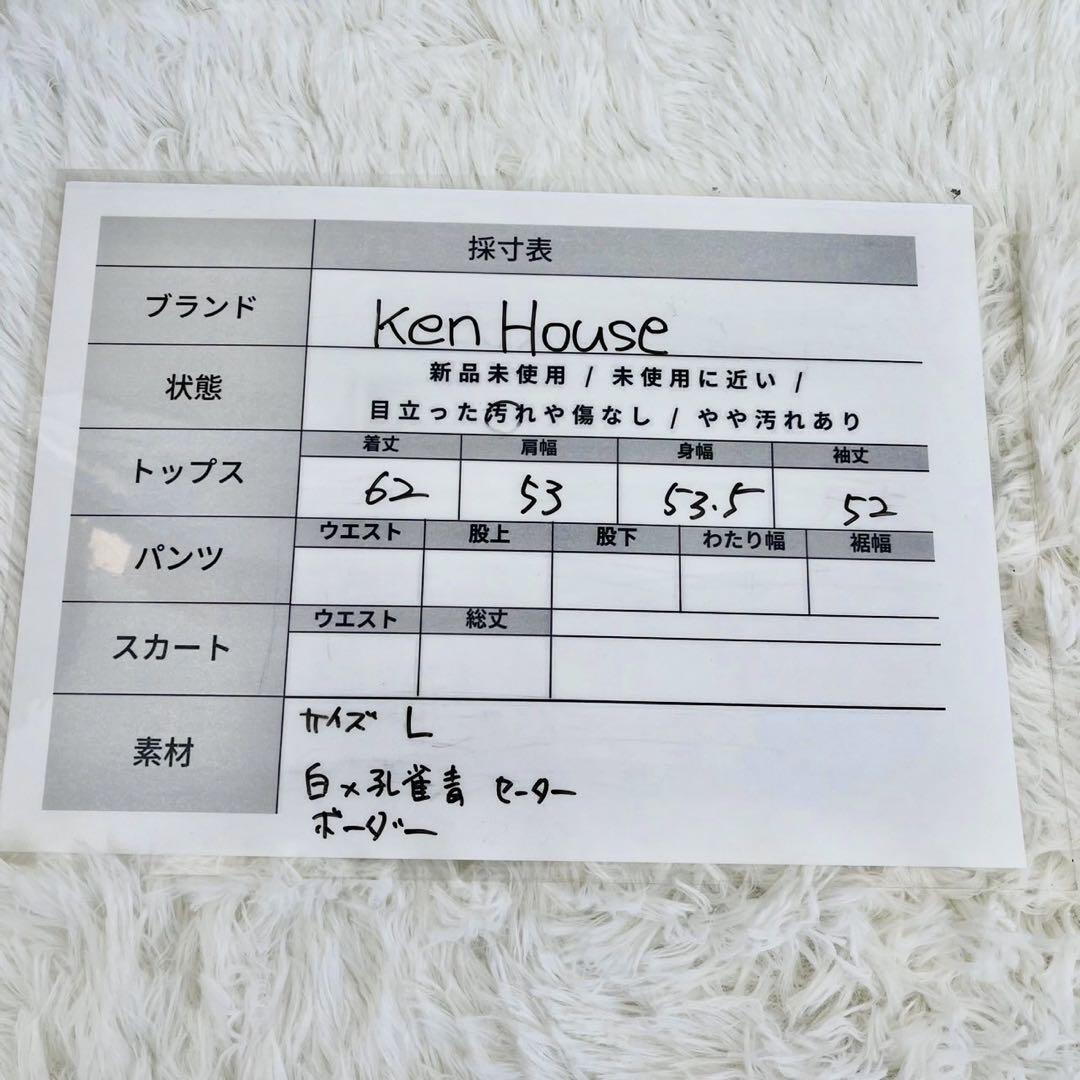 採寸表
ブランド
Ken House
状態
新品未使用 / 未使用に近い /
目立った汚れや傷なし / やや汚れあり
トップス
着丈 肩幅 身幅 袖丈
62 53 53.5 52
パンツ
ウエスト 股上 股下 わたり幅 裾幅
スカート
ウエスト 総丈
素材
サイズ L
白×孔雀青 セーター
ボーダー